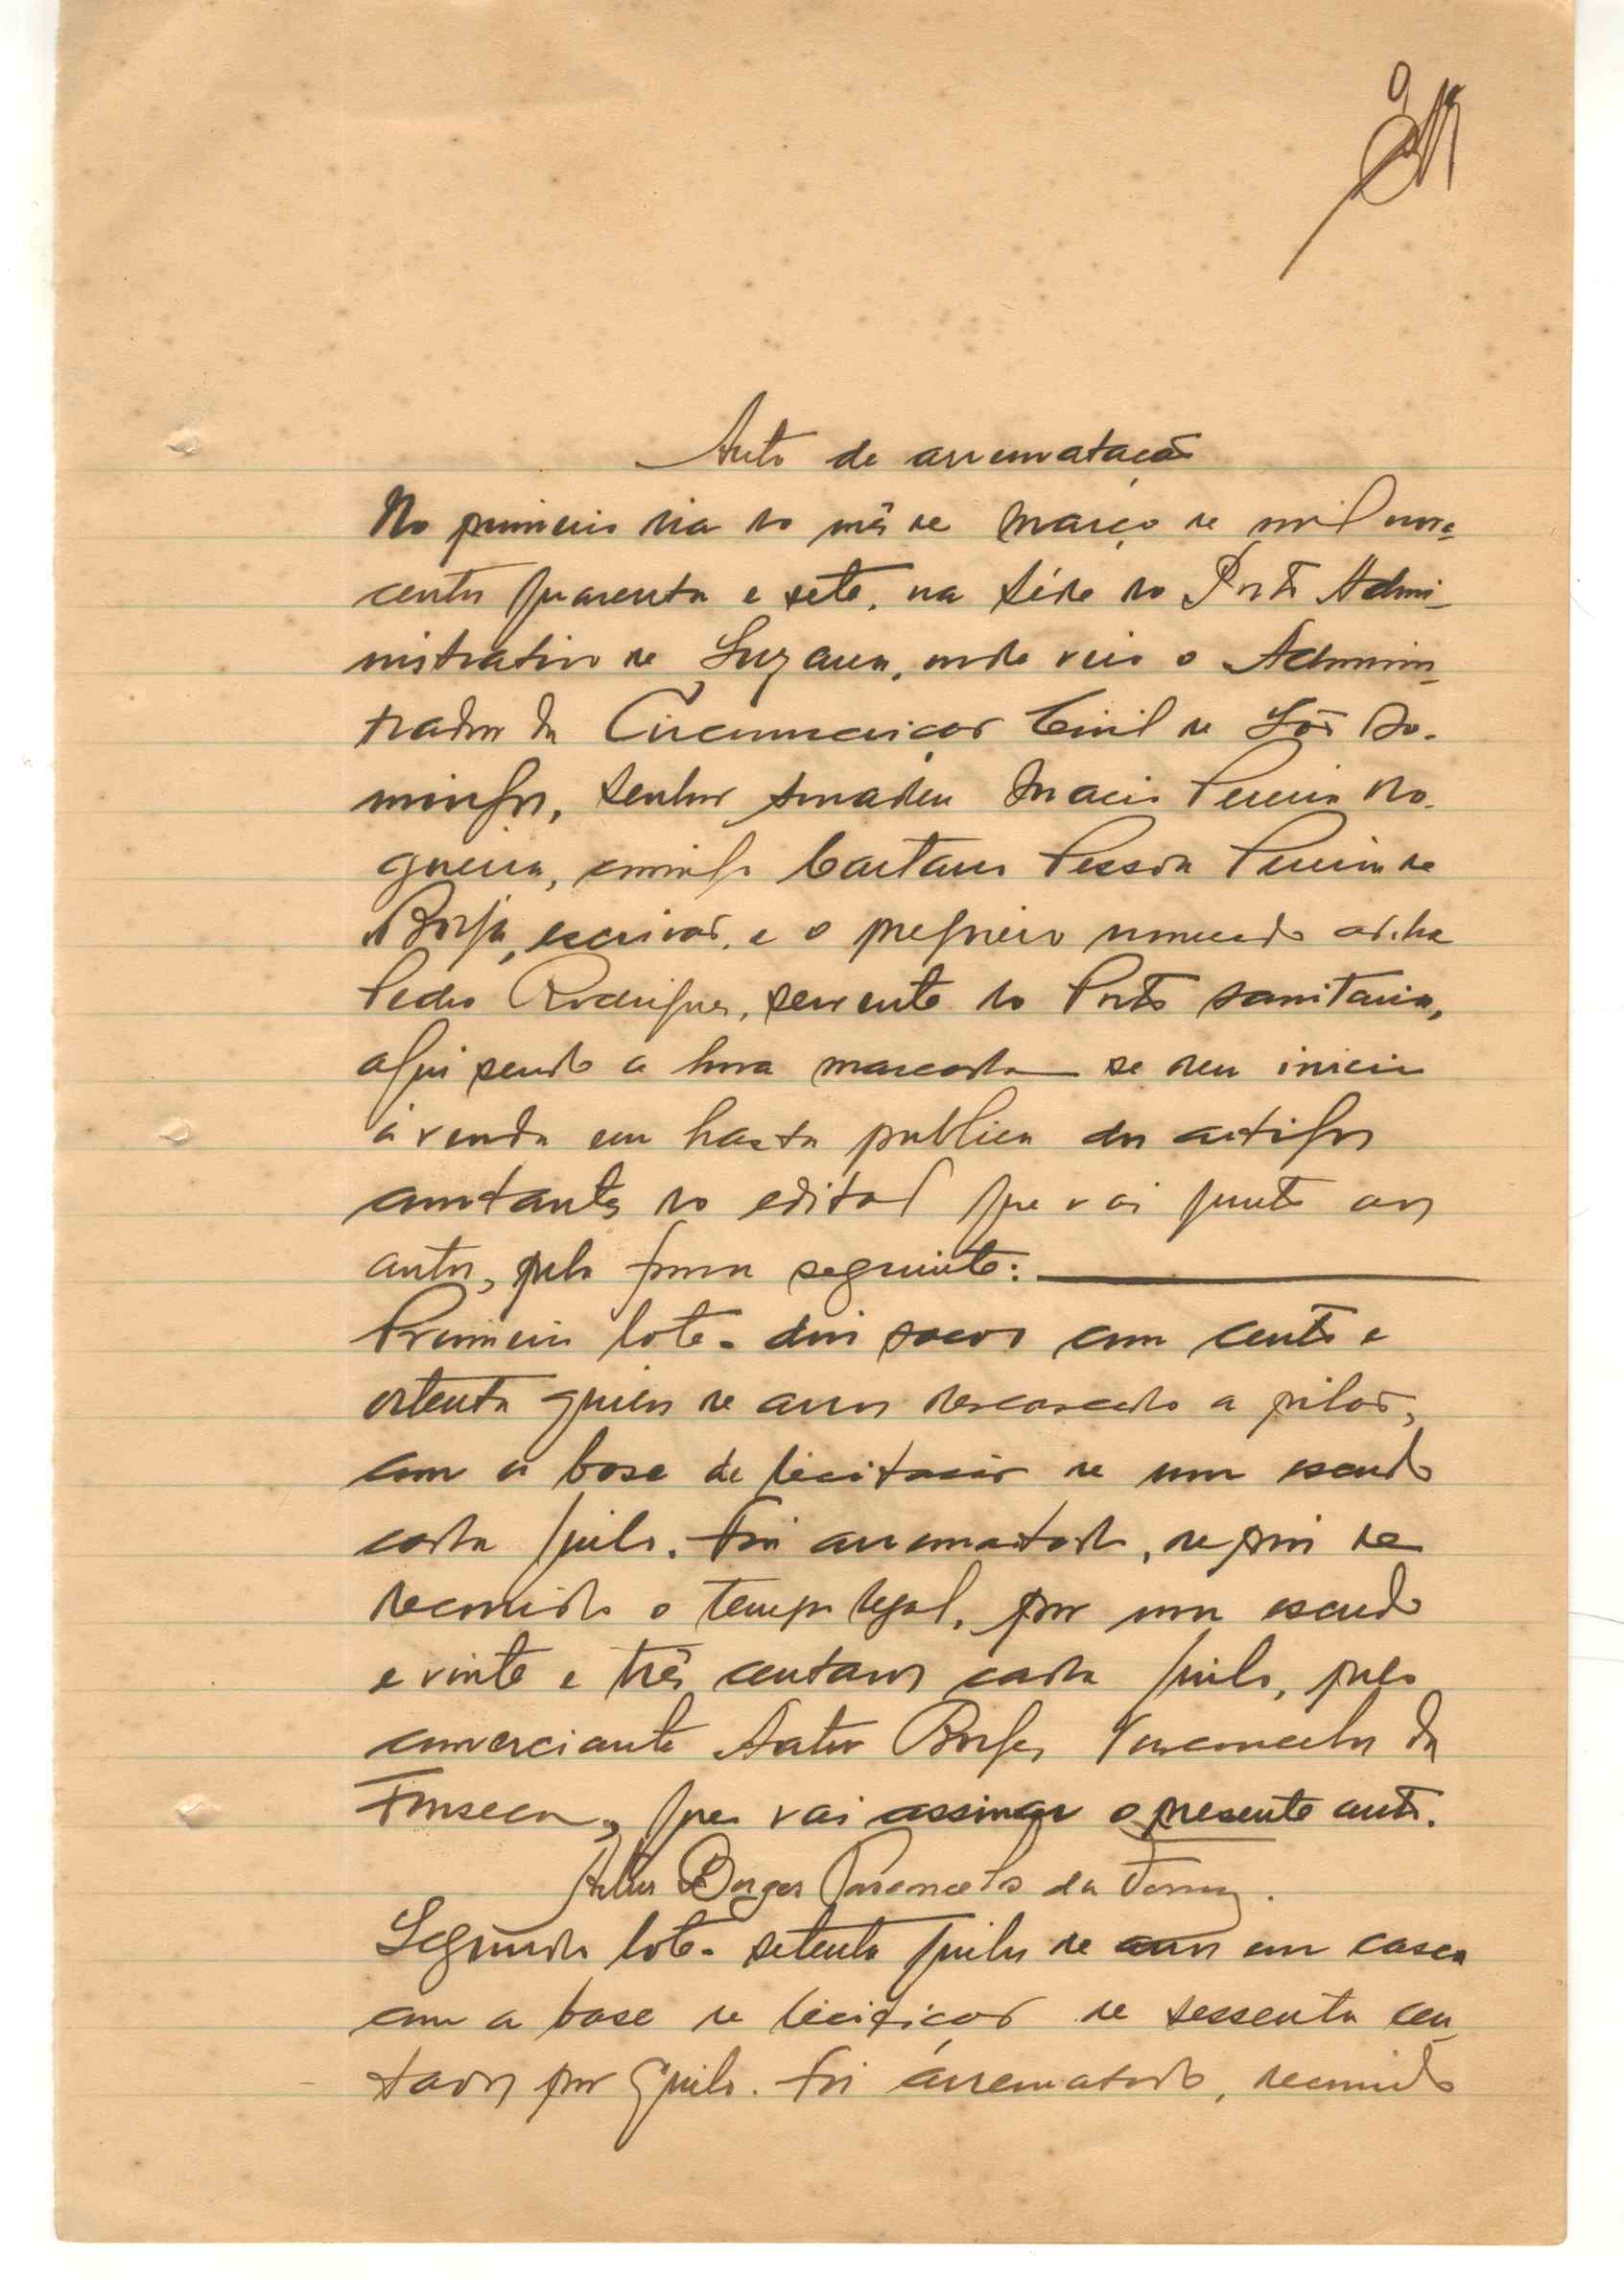 Auto de arrematação
No primeiro dia do mês de Março de mil nove-
centos quarenta e sete, na séde do Posto Admi-
nistrativo de Suzana, onde veio o Adminis-
trador da Circunscrição Civil de São Do-
mingos, senhor Amadeu Inacio Pereira No-
gueira, comigo Caetano Pessoa Pereira de
Borja, escrivão, e o pregoeiro nomeado ad-hoc
Pedro Rodrigues, servente do Posto sanitario,
aqui sendo a hora marcada se deu inicio
á venda em hasta publica dos artigos
constantes do edital que vai junto aos
autos, pela forma seguinte:
Primeiro lote - dois sacos com cento e
oitenta quilos de arroz descascado a pilão,
com a base de licitação de um escudo
cada quilo. Foi arrematado, depois de
decorrido o tempo legal, por um escudo
e vinte e três centavos cada quilo, pelo
comerciante Artur Borges Vasconcelos da
Fonseca, que vai assinar o presente auto.
Artur Borges Vasconcelos da Fonseca.
Segundo lote - setenta quilos de arroz em casca
com a base de licitação de sessenta cen-
tavos por quilo. Foi arrematado, decorrido